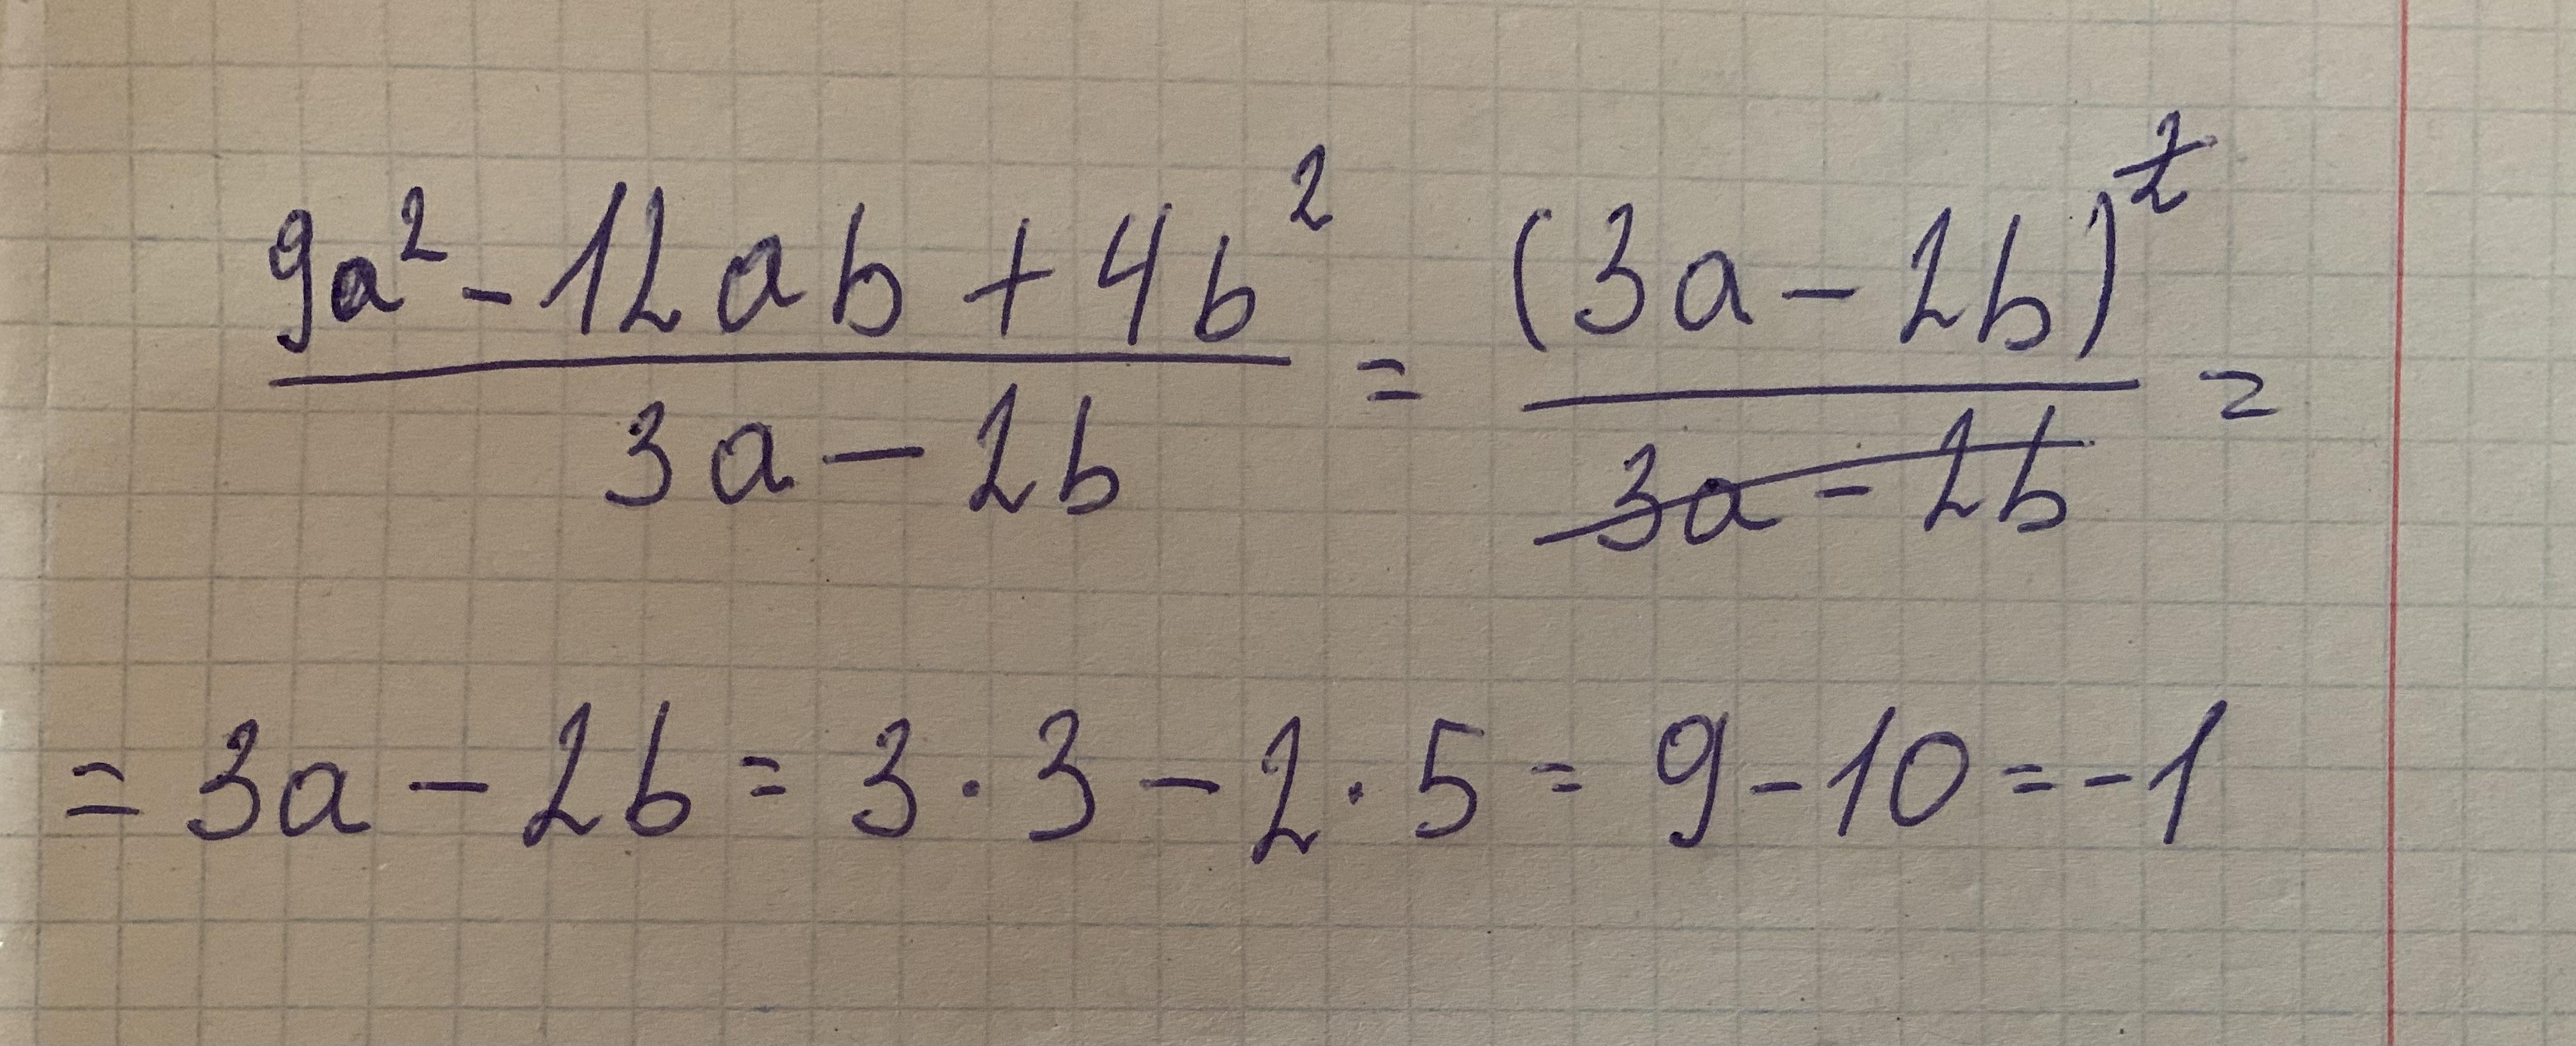 (9a² - 12ab + 4b²)/(3a - 2b) = (3a - 2b)²/(3a - 2b) =
= 3a - 2b = 3 · 3 - 2 · 5 = 9 - 10 = -1